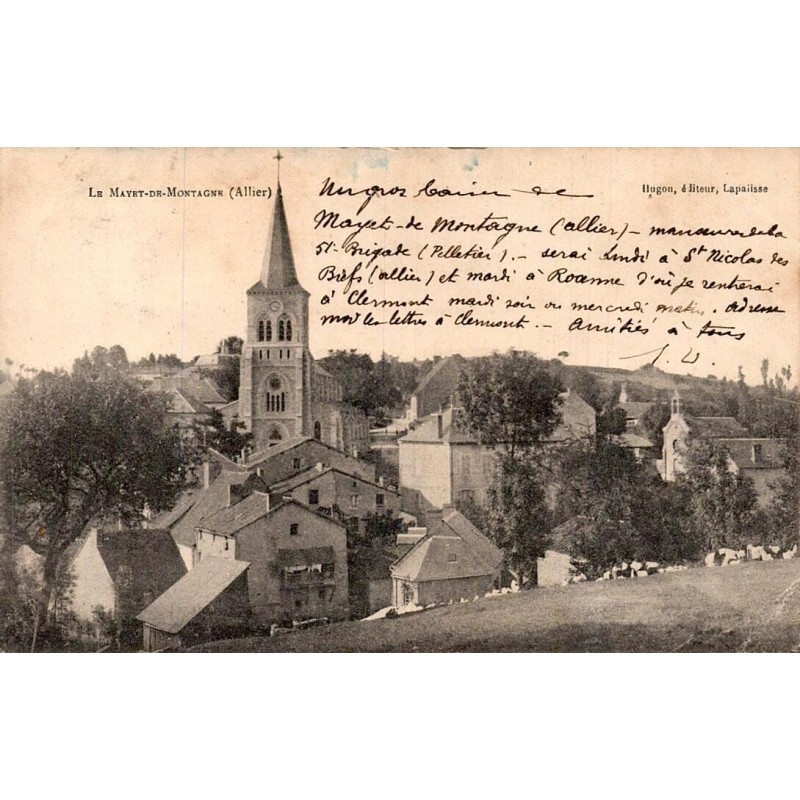 LE MAYET-DE-MONTAGNE (Allier)
Hugon, éditeur, Lapalisse
Un gros baiser de
Mayet-de Montagne (allier) - manœuvres de la
51e Brigade (Pelletier). - serai lundi à St Nicolas des
Biefs (allier) et mardi à Roanne d'où je rentrerai
à Clermont mardi soir ou mercredi matin. adresse
moi les lettres à Clermont. - Amitiés à tous